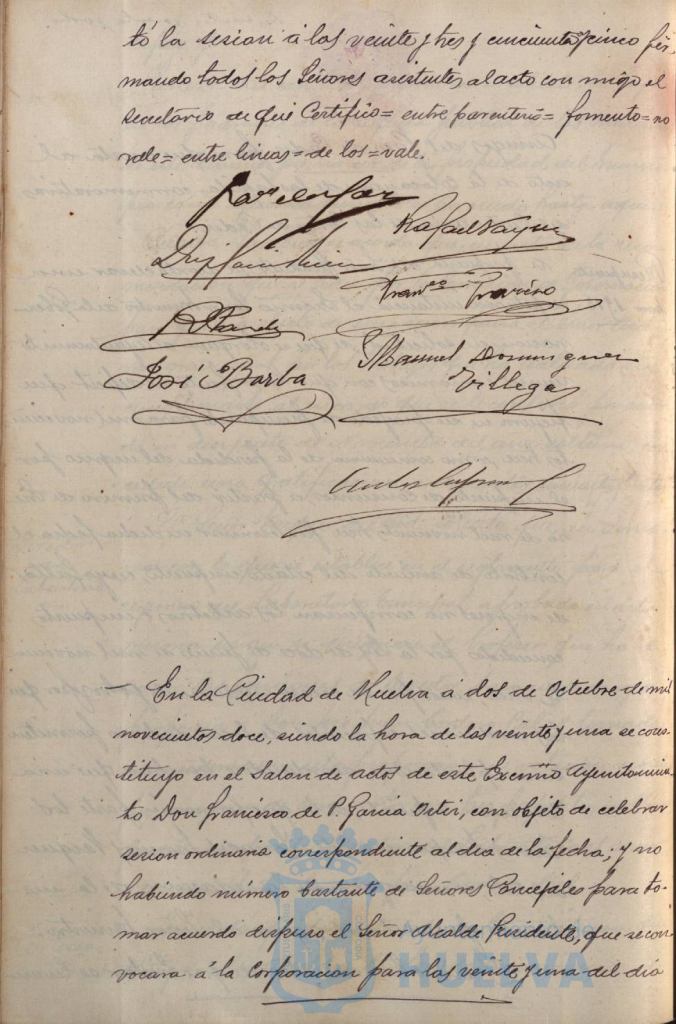 tó la sesion á las veinte y tres y cincuenta y cinco fir-
mando todos los Señores asistentes al acto con migo el
secretario de que Certifico= entre parentesis= fomento=no
vale= entre lineas=de los=vale.
Rafael Vazquez
José Barba
Manuel Dominguez
Villegas
— En la Ciudad de Huelva á dos de Octubre de mil
novecientos doce, siendo la hora de las veinte y una se cons-
tituyo en el Salon de actos de este Excmo Ayuntamien-
to Don Francisco de P. Garcia Ortiz, con objeto de celebrar
sesion ordinaria correspondiente al dia de la fecha; y no
habiendo número bastante de Señores Concejales para to-
mar acuerdo dispuso el Señor Alcalde Presidente, que se con
vocara á la Corporacion para las veinte y una del dia
HUELVA